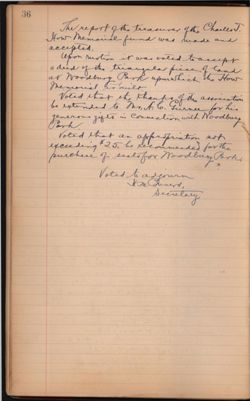 36
The report of the treasurer of the Charles T.
How Memorial fund was made and
accepted.
Upon motion it was voted to accept
a deed of the triangular piece of land
at Woodbury Park upon which the How
Memorial is built
Voted that the thanks of the association
be extended to Mr. A. E. for his
generous gifts in connection with Woodbury
Park
Voted that an appropriation not
exceeding $25. be recommended for the
purchase of seats for Woodbury Park
Voted to adjourn
Secretary